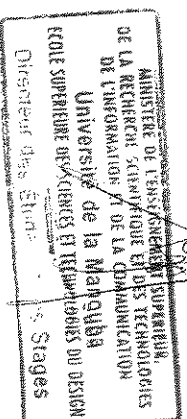 MINISTERE DE L'ENSEIGNEMENT SUPERIEUR,
DE LA RECHERCHE SCIENTIFIQUE ET DES TECHNOLOGIES
DE L'INFORMATION DE LA COMMUNICATION
Université de la Manouba
ECOLE SUPERIEURE DES SCIENCES ET TECHNOLOGIES DU DESIGN
Directeur des Etudes Stages